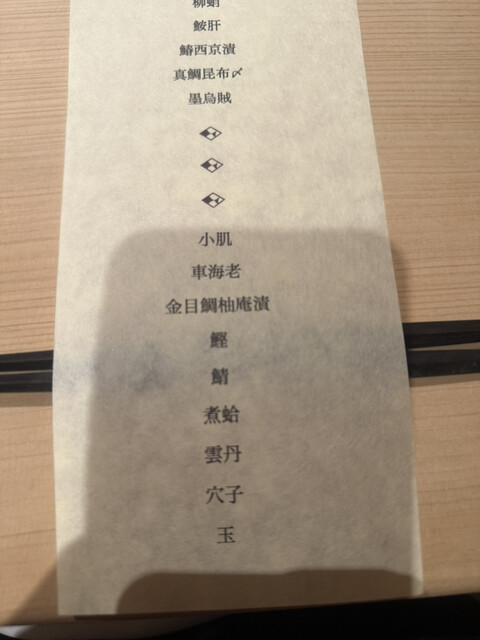 柳蛸
鮟肝
鰆西京漬
真鯛昆布〆
墨烏賊
小肌
車海老
金目鯛柚庵漬
鰹
鯖
煮蛤
雲丹
穴子
玉